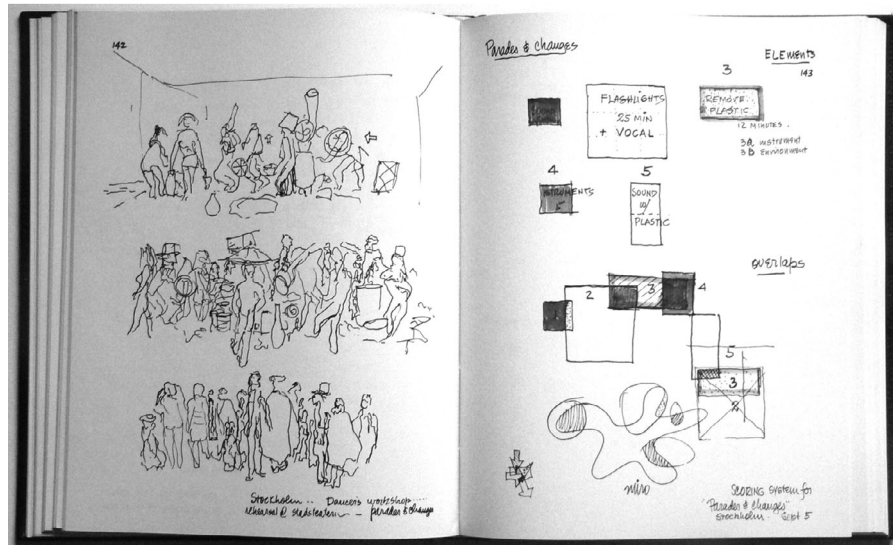 142
Stockholm .. Dancer's workshop ....
rehearsal @ Stadsteatern — parades & changes
Parades & Changes
ELEMENTS
143
FLASHLIGHTS
25 MIN
+ VOCAL
3
REMOVE
PLASTIC
12 MINUTES.
3a instrument
3B Environment
4
5
SOUND
w/
PLASTIC
OVERLAPS
2
3
4
5
3
2
miro
SCORING System for
"Parades & Changes"
Stockholm - Sept 5